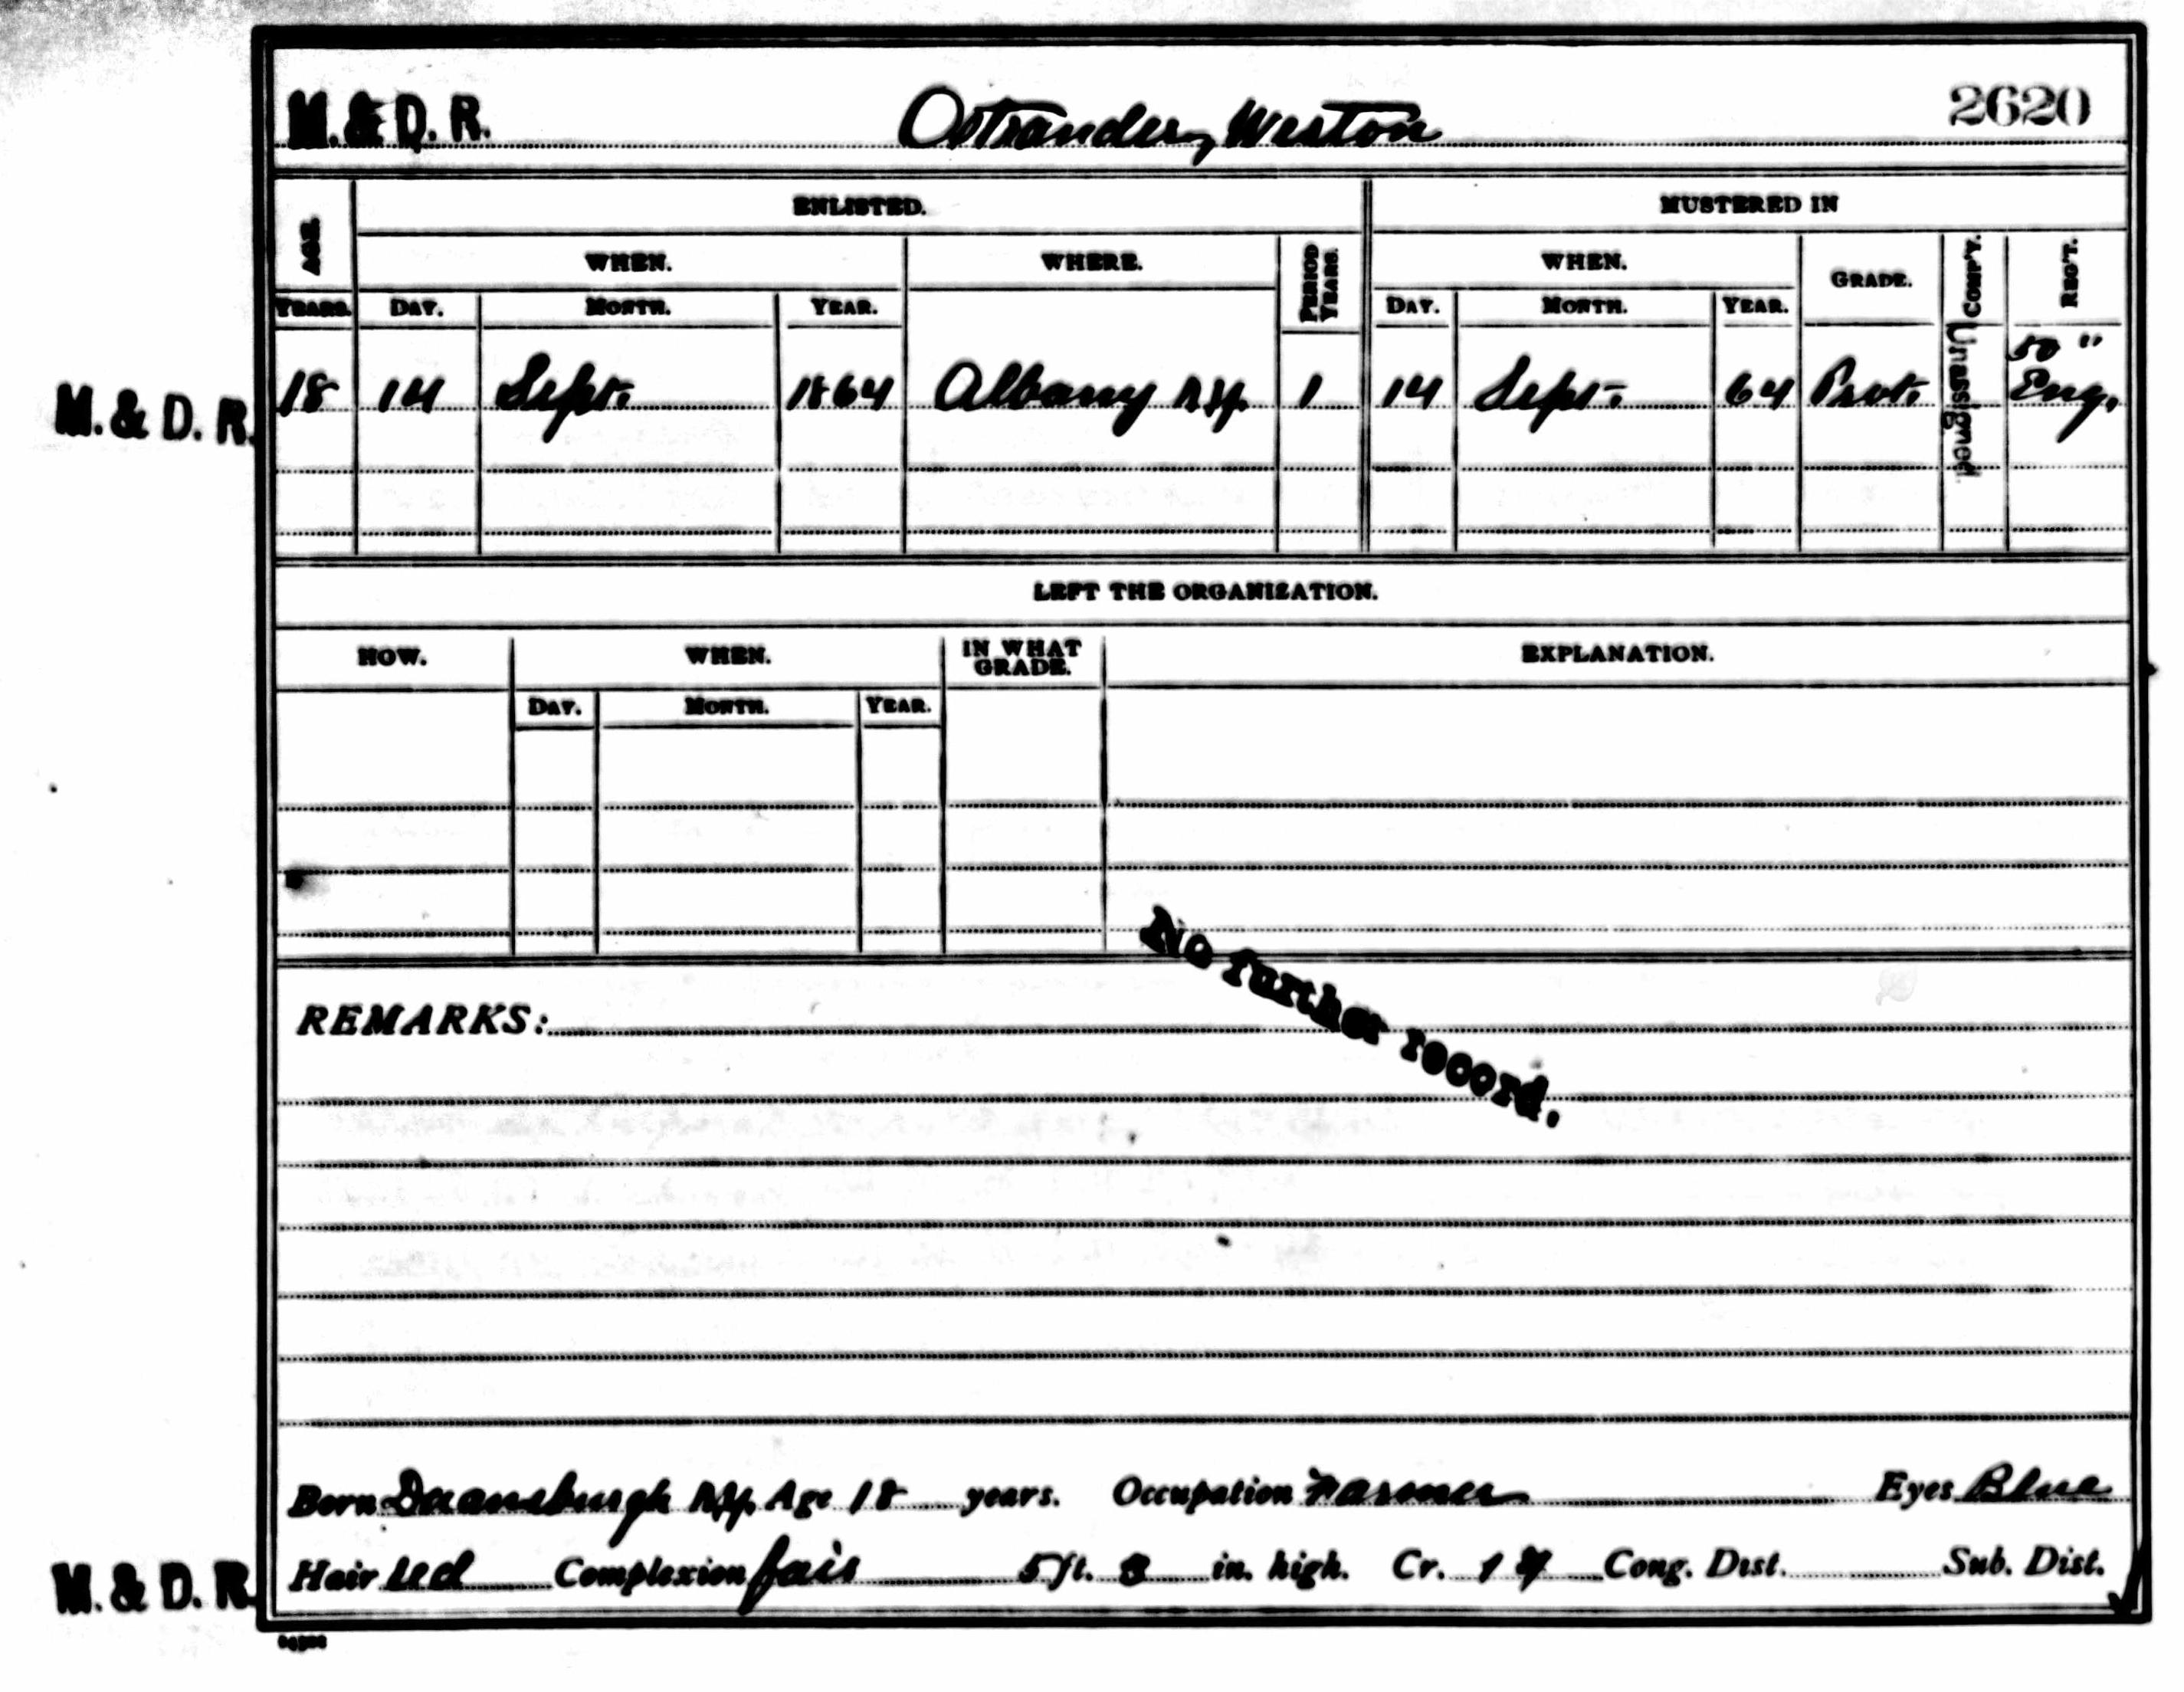 M. & D. R. Ostrander, Weston 2620
ENLISTED. MUSTERED IN
AGE. WHEN. WHERE. PERIOD YEARS. WHEN. GRADE. COMP'Y. REG'T.
YEARS. DAY. MONTH. YEAR. DAY. MONTH. YEAR.
50"
M. & D. R. 18 14 Sept. 1864 Albany N.Y. 1 14 Sept. 64 Pvt. Unassigned. Eng.
LEFT THE ORGANIZATION.
HOW. WHEN. IN WHAT GRADE. EXPLANATION.
DAY. MONTH. YEAR.
No further record.
REMARKS:
Born Duanesburgh N.Y. Age 18 years. Occupation Farmer Eyes Blue
M. & D. R. Hair red Complexion fair 5 ft. 8 in. high. Cr. Cong. Dist. Sub. Dist.